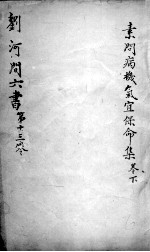 素問病機氣宜保命集卷下
劉河間六書第十三